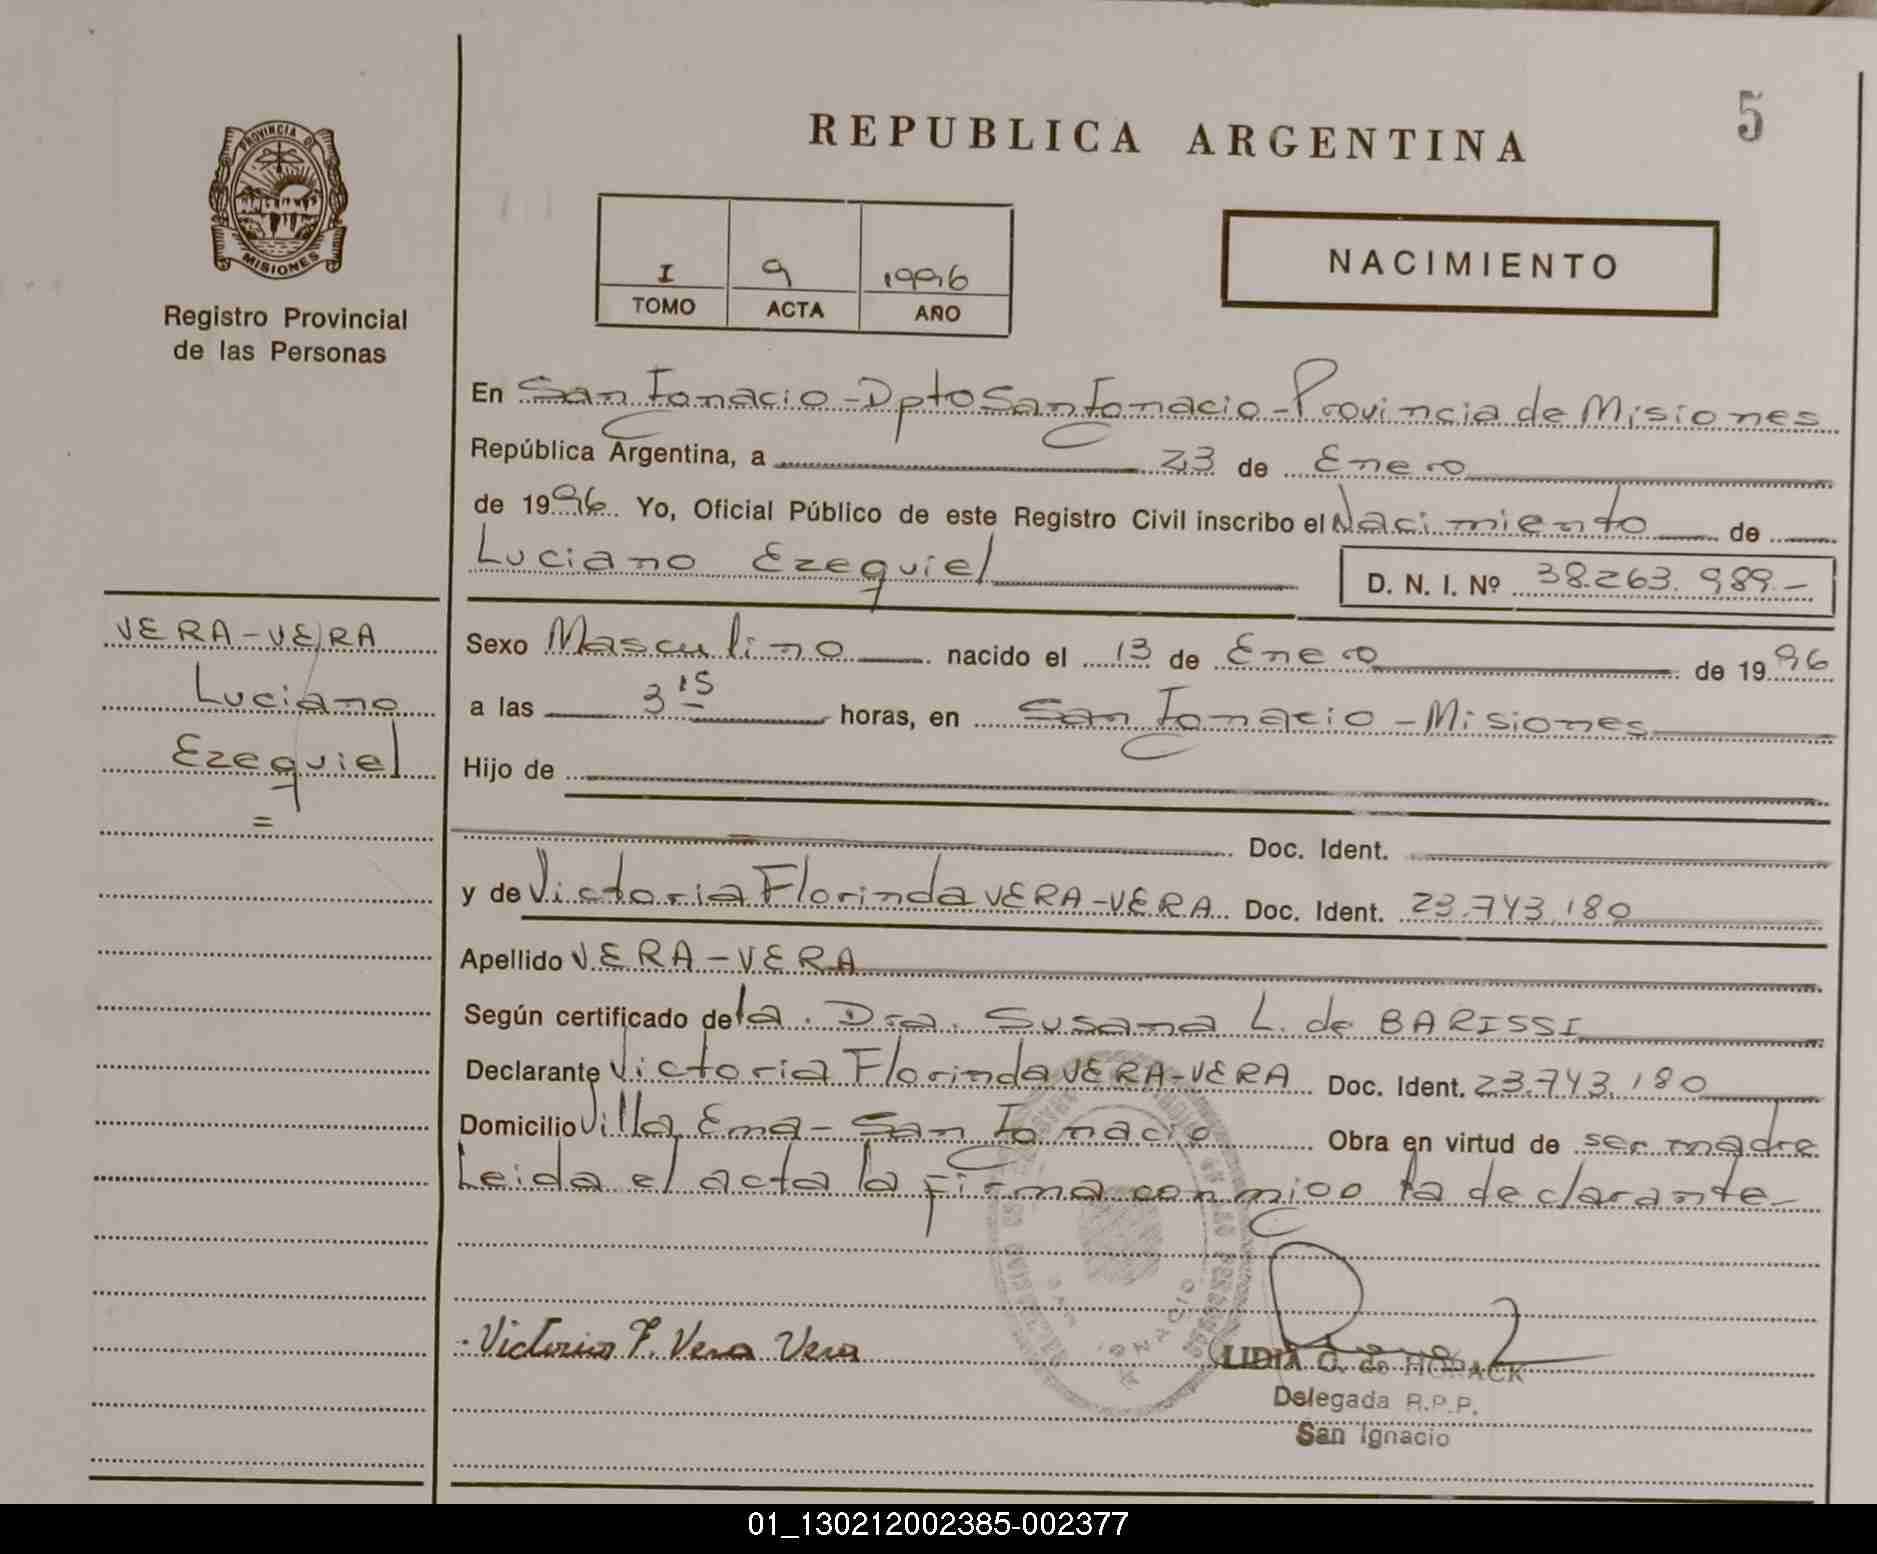 REPUBLICA ARGENTINA
5
PROVINCIA DE
MISIONES
Registro Provincial
de las Personas
I 9 1996
TOMO ACTA AÑO
NACIMIENTO
En San Ignacio - Dpto San Ignacio - Provincia de Misiones
República Argentina, a 23 de Enero
de 1996. Yo, Oficial Público de este Registro Civil inscribo el Nacimiento de
Luciano Ezequiel
D. N. I. Nº 38.263.989.-
VERA-VERA
Luciano
Ezequiel
=
Sexo Masculino nacido el 13 de Enero de 1996
a las 3 15 horas, en San Ignacio - Misiones
Hijo de
Doc. Ident.
y de Victoria Florinda VERA-VERA Doc. Ident. 23.743.180
Apellido VERA-VERA
Según certificado de la Dra. Susana L. de BARISSI
Declarante Victoria Florinda VERA-VERA Doc. Ident. 23.743.180
Domicilio Villa Ema - San Ignacio Obra en virtud de ser madre
Leida el acta la firma conmigo la declarante-
Victoria F. Vera Vera
LIDIA C. de HORACK
Delegada R.P.P.
San Ignacio
01_130212002385-002377